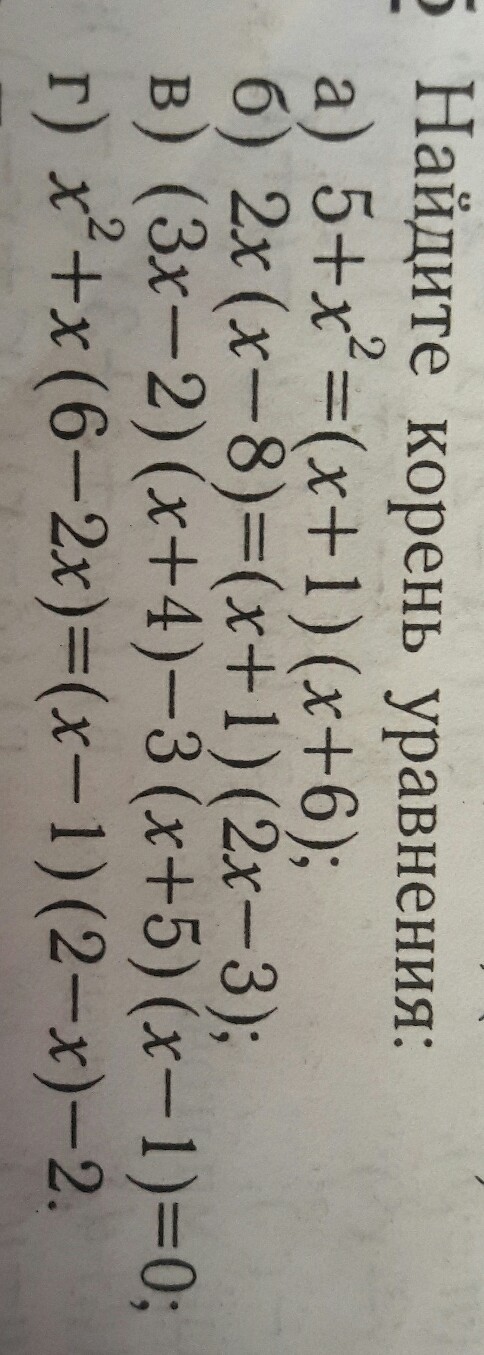 Найдите корень уравнения:
а) 5+x²=(x+1)(x+6);
б) 2x(x−8)=(x+1)(2x−3);
в) (3x−2)(x+4)−3(x+5)(x−1)=0;
г) x²+x(6−2x)=(x−1)(2−x)−2.